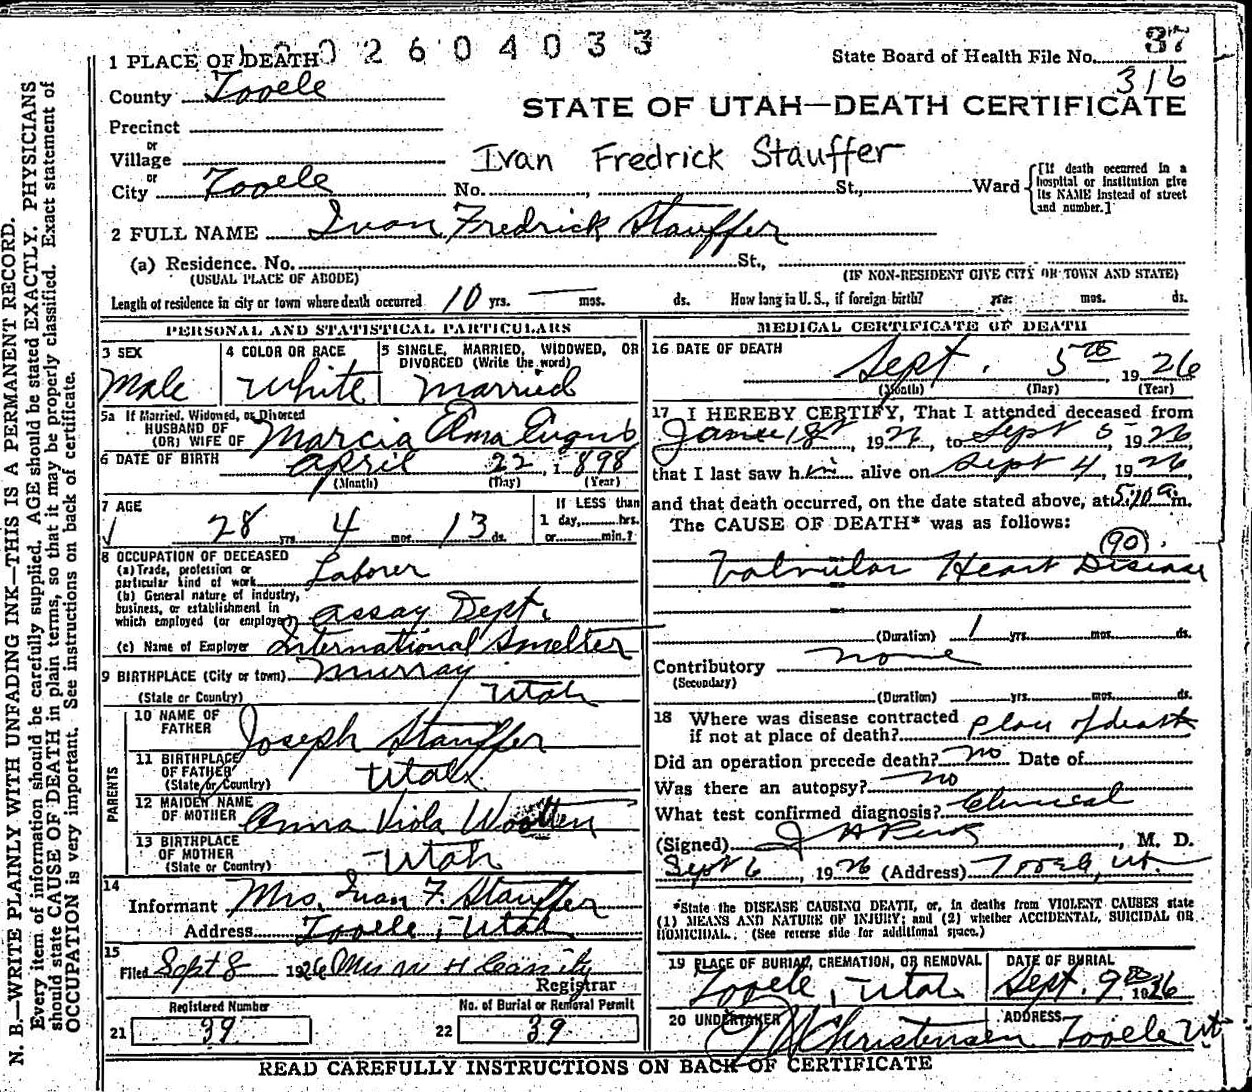 2 6 0 4 0 3 3
37
1 PLACE OF DEATH
State Board of Health File No.
316
County Tooele
STATE OF UTAH—DEATH CERTIFICATE
Precinct
or
Village
Ivan Fredrick Stauffer
or
City Tooele No. , St., Ward
[If death occurred in a
hospital or institution give
its NAME instead of street
and number.]
2 FULL NAME Ivan Fredrick Stauffer
(a) Residence. No. St.,
(USUAL PLACE OF ABODE) (IF NON-RESIDENT GIVE CITY OR TOWN AND STATE)
Length of residence in city or town where death occurred 10 yrs. — mos. ds. How long in U. S., if foreign birth? yrs. mos. ds.
PERSONAL AND STATISTICAL PARTICULARS
3 SEX
Male
4 COLOR OR RACE
White
5 SINGLE, MARRIED, WIDOWED, OR
DIVORCED (Write the word)
Married
5a If Married, Widowed, or Divorced
HUSBAND OF
(OR) WIFE OF Marcia Elma
6 DATE OF BIRTH April 22, 1898
(Month) (Day) (Year)
7 AGE
28 yrs. 4 mos. 13 ds.
If LESS than
1 day, hrs.
or min.?
8 OCCUPATION OF DECEASED
(a) Trade, profession or
particular kind of work Laborer
(b) General nature of industry,
business, or establishment in
which employed (or employer) Assay Dept.
(c) Name of Employer International Smelter
9 BIRTHPLACE (City or town) Murray
(State or Country) Utah
PARENTS
10 NAME OF
FATHER Joseph Stauffer
11 BIRTHPLACE
OF FATHER
(State or Country) Utah
12 MAIDEN NAME
OF MOTHER Anna Viola Wootten
13 BIRTHPLACE
OF MOTHER
(State or Country) Utah
14
Informant Mrs. Ivan F. Stauffer
Address Tooele, Utah
15
Filed Sept 8 1926 Mrs
Registrar
Registered Number
21 39
No. of Burial or Removal Permit
22 39
MEDICAL CERTIFICATE OF DEATH
16 DATE OF DEATH
Sept. 5th, 1926
(Month) (Day) (Year)
17 I HEREBY CERTIFY, That I attended deceased from
1926, to Sept 5 1926
that I last saw him alive on Sept 4, 1926
and that death occurred, on the date stated above, at 5:10 a. m.
The CAUSE OF DEATH* was as follows:
(90).
Valvular Heart Disease
(Duration) 1 yrs. mos. ds.
Contributory none
(Secondary)
(Duration) yrs. mos. ds.
18 Where was disease contracted
if not at place of death? place of death
Did an operation precede death? no Date of
Was there an autopsy? no
What test confirmed diagnosis? Clinical
(Signed) , M. D.
Sept 6, 1926 (Address) Tooele, Ut.
*State the DISEASE CAUSING DEATH, or, in deaths from VIOLENT CAUSES state
(1) MEANS AND NATURE OF INJURY; and (2) whether ACCIDENTAL, SUICIDAL OR
HOMICIDAL. (See reverse side for additional space.)
19 PLACE OF BURIAL, CREMATION, OR REMOVAL
Tooele, Utah
DATE OF BURIAL
Sept. 9th 1926
20 UNDERTAKER
Christensen
ADDRESS
Tooele Ut
READ CAREFULLY INSTRUCTIONS ON BACK OF CERTIFICATE
N. B.—WRITE PLAINLY WITH UNFADING INK—THIS IS A PERMANENT RECORD.
Every item of information should be carefully supplied. AGE should be stated EXACTLY. PHYSICIANS
should state CAUSE OF DEATH in plain terms, so that it may be properly classified. Exact statement of
OCCUPATION is very important. See instructions on back of certificate.